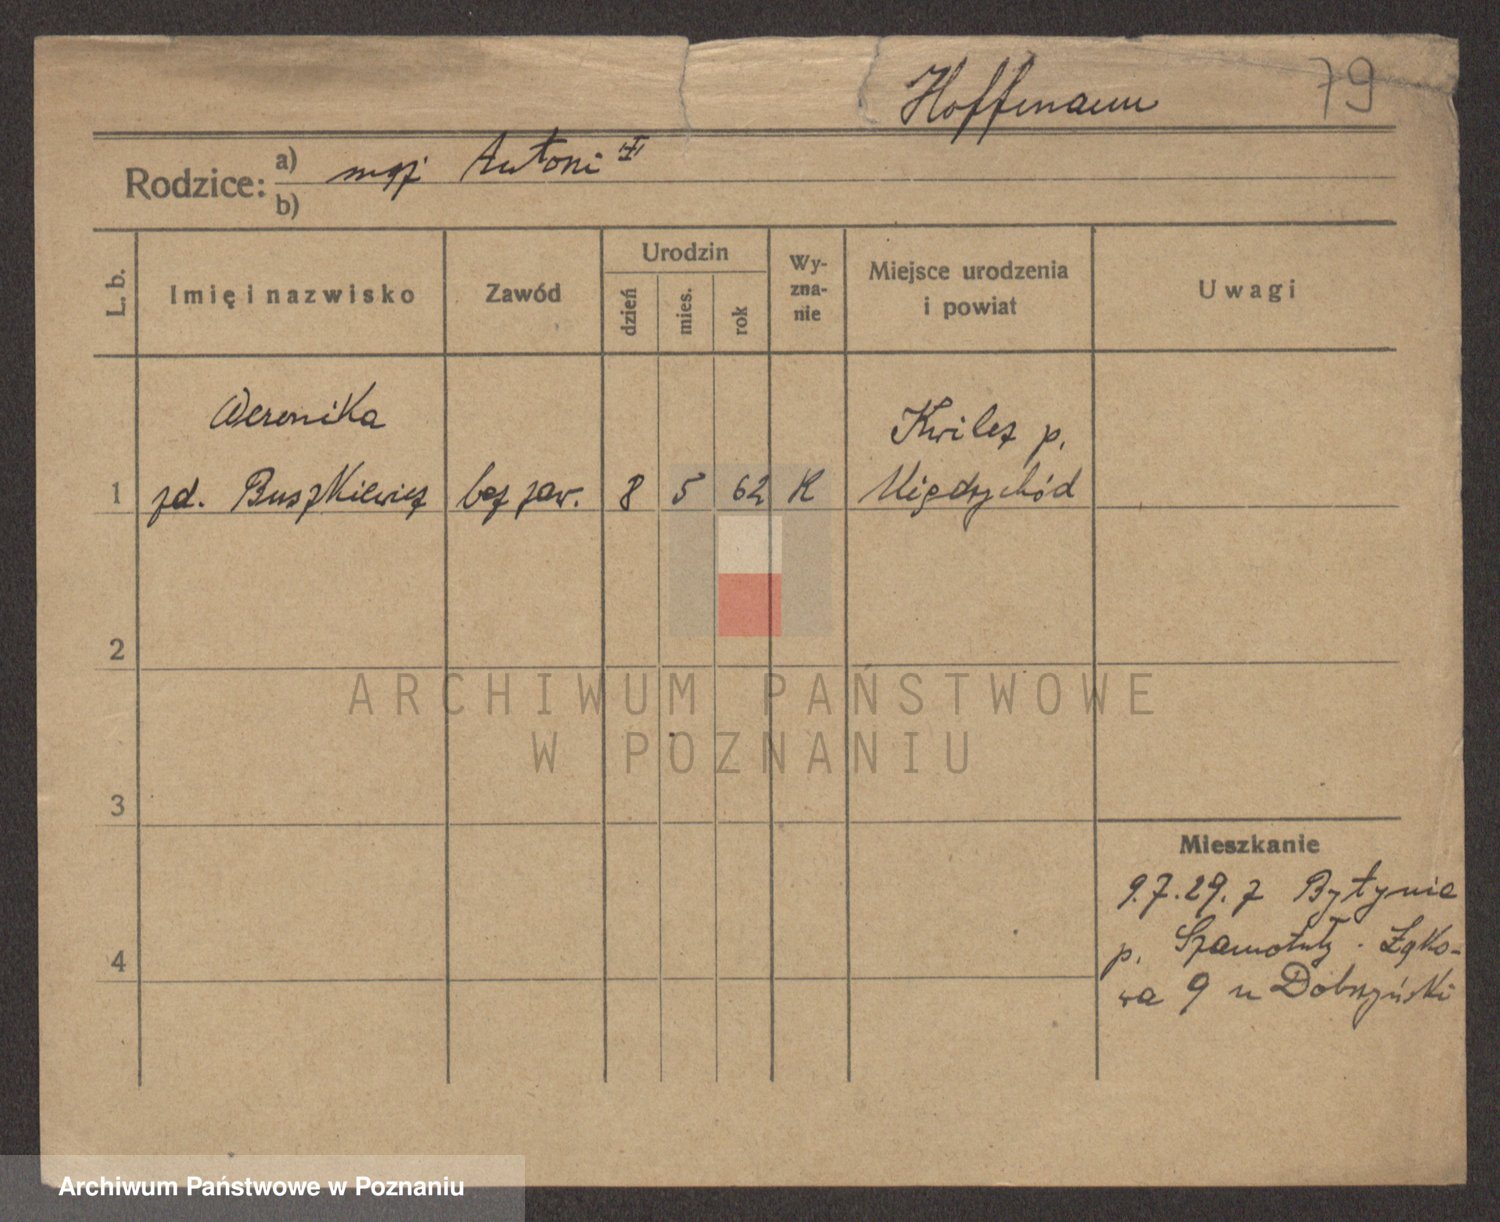 Hoffmann 79
Rodzice: a) mąż Antoni
b)
L. b.
Imię i nazwisko
Zawód
Urodzin
dzień
mies.
rok
Wy-
zna-
nie
Miejsce urodzenia
i powiat
Uwagi
Weronika
Kwilcz p.
1 zd. Buszkiewicz bez zaw. 8 5 62 K Międzychód
2
3
4
Mieszkanie
9.7.29. z Bytynia
p. Szamotuły. Łąko-
wa 9 u Dobrzyński
ARCHIWUM PAŃSTWOWE
W POZNANIU
Archiwum Państwowe w Poznaniu